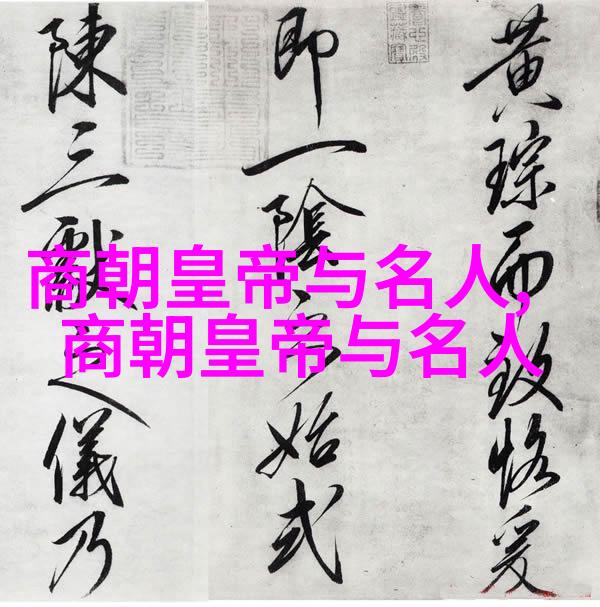 黄琮而致恪爰
即一陰之始式
陳三獻之儀乃
商朝皇帝与名人,
商朝皇帝与名人